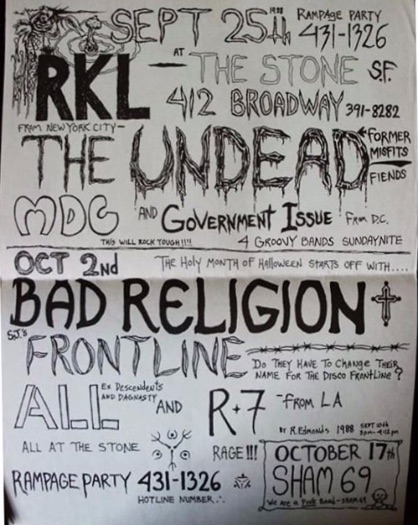 SEPT 25th 1988 RAMPAGE PARTY
431-1326
AT THE STONE S.F.
RKL 412 BROADWAY 391-8282
FROM NEW YORK CITY—
THE UNDEAD FORMER MISFITS FIENDS
MDC AND GOVERNMENT ISSUE FROM D.C.
THIS WILL ROCK TOUGH!!!! 4 GROOVY BANDS SUNDAYNITE
OCT 2nd THE HOLY MONTH OF HALLOWEEN STARTS OFF WITH....
BAD RELIGION
S.J.'s
FRONTLINE DO THEY HAVE TO CHANGE THEIR NAME FOR THE DISCO FRONTLINE?
ALL EX DESCENDENTS AND DAGNASTY AND R+7 -FROM LA
BY R. EDMONDS 1988 SEPT 10th
ALL AT THE STONE RAGE!!! OCTOBER 17th
RAMPAGE PARTY 431-1326 SHAM 69
HOTLINE NUMBER WE ARE A PUNK BAND-SHAM 69